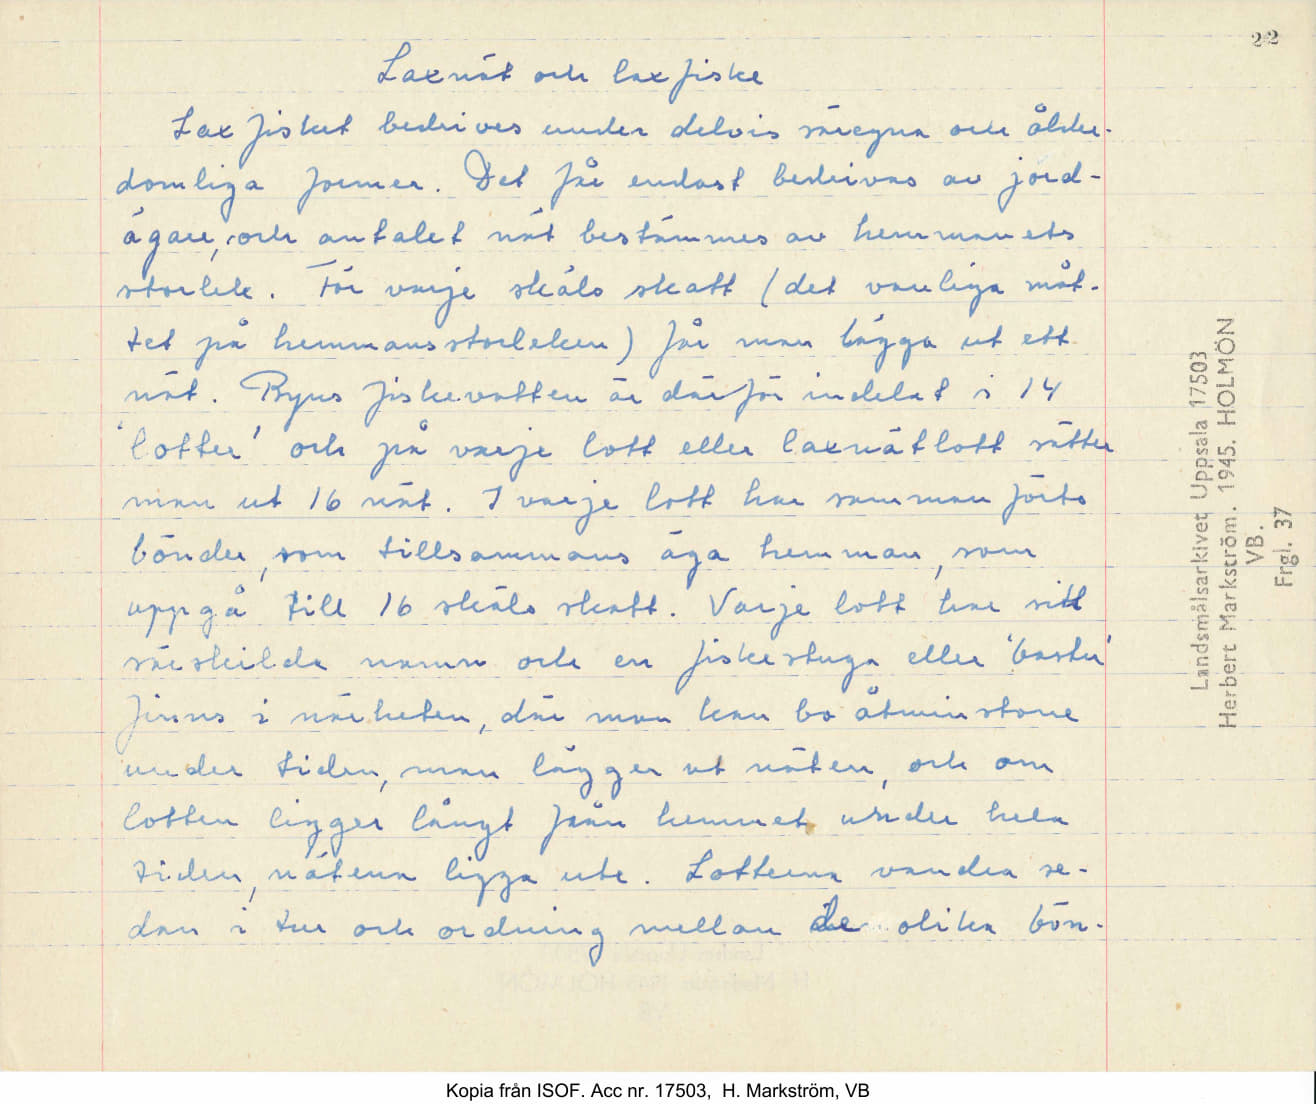 22
Laxnät och laxfiske
Laxfisket bedrives under delvis säregna och ålder-
domliga former. Det får endast bedrivas av jord-
ägare, och antalet nät bestämmes av hemmanets
storlek. För varje skäls skatt (det vanliga måt-
tet på hemmansstorleken) får man lägga ut ett
nät. Byns fiskevatten är därför indelat i 14
'lotter' och på varje lott eller laxnätlott sätter
man ut 16 nät. I varje lott har sammanförts
bönder, som tillsammans äga hemman, som
uppgå till 16 skäls skatt. Varje lott har sitt
särskilda namn och en fiskestuga eller 'bastu'
finns i närheten, där man kan bo åtminstone
under tiden, man lägger ut näten, och om
lotten ligger långt från hemmet under hela
tiden, nätena ligga ute. Lotterna vandra se-
dan i tur och ordning mellan de olika bön-
Landsmålsarkivet Uppsala 17503
Herbert Markström. 1945. HOLMÖN
VB.
Frgl. 37
Kopia från ISOF. Acc nr. 17503, H. Markström, VB